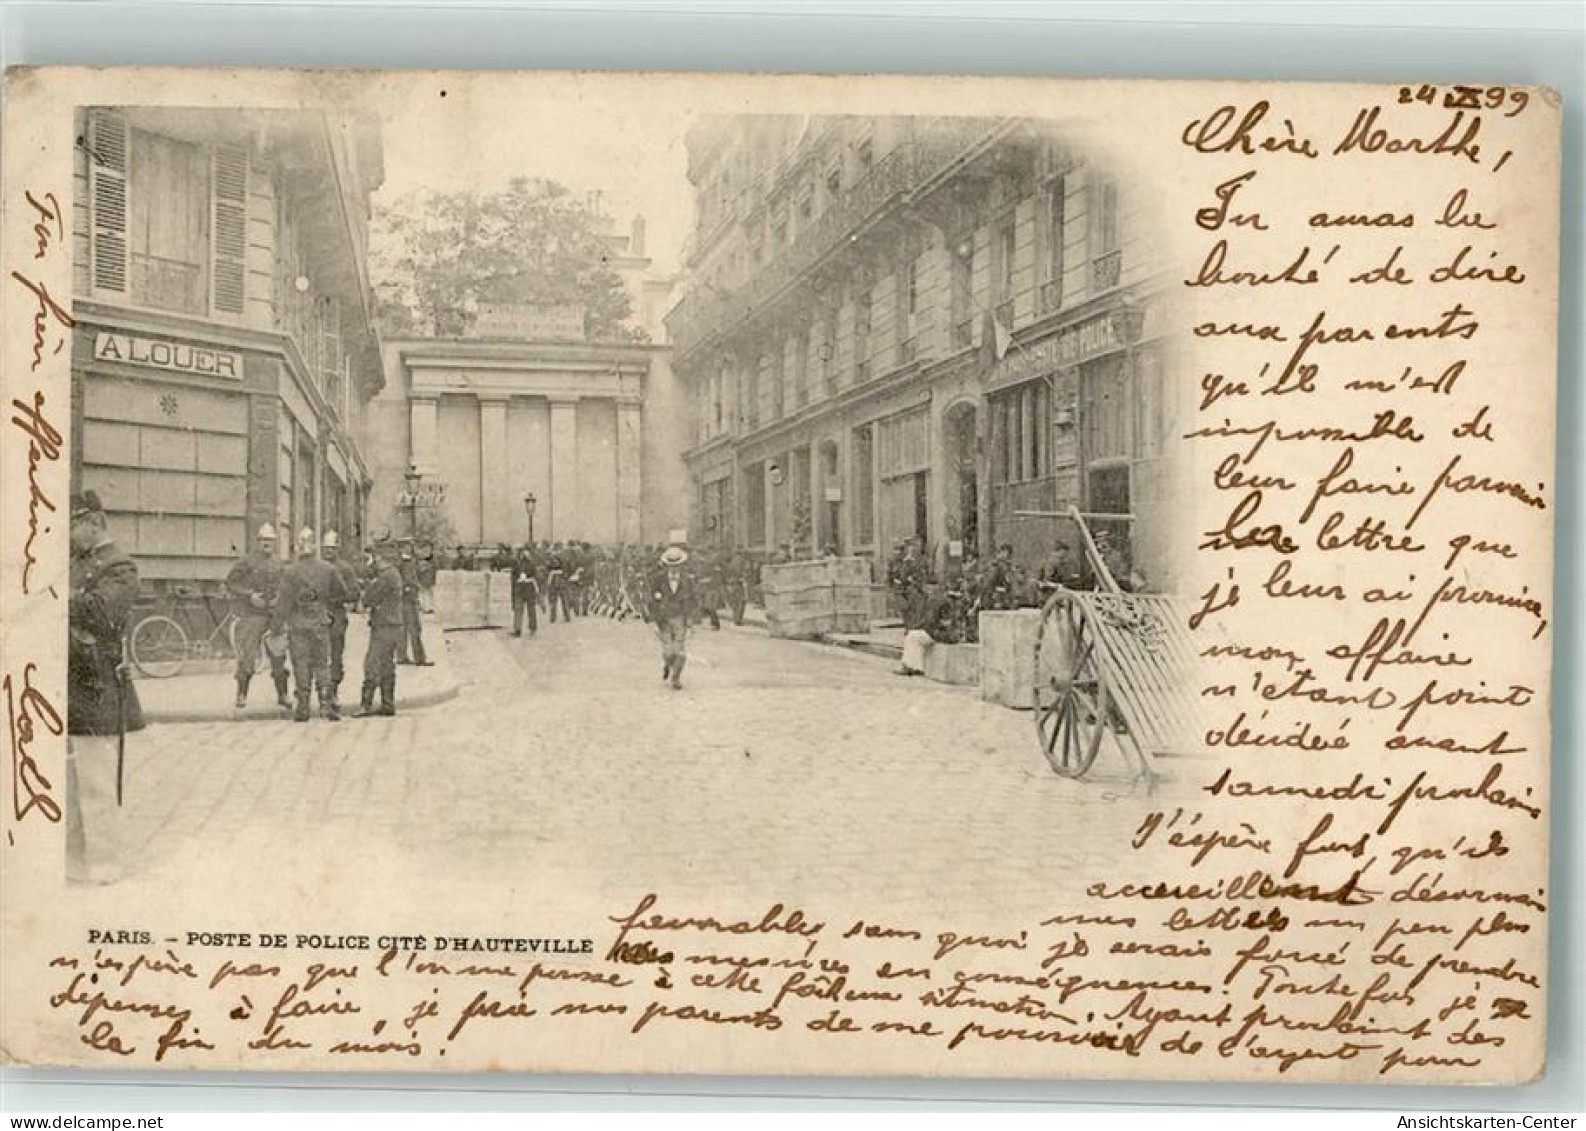 24 X 99
Chère Marthe,
Tu auras la
bonté de dire
aux parents
qu'il m'est
impossible de
leur faire parvenir
la lettre que
je leur ai promise,
mon affaire
n'étant point
décidée avant
samedi prochain
J'éspère fort, qu'ils
accueillent désormais
mes lettres un peu plus
favorables sans quoi je serais forcé de prendre
mes mesures en conséquences. Toutefois je
n'espère pas que l'on me pousse à cette fâcheuse situation. Ayant prochaint des
dépenses à faire, je prie nos parents de me pourvoir de l'argent pour
la fin du mois.
Ton frère affectionné
PARIS. – POSTE DE POLICE CITÉ D'HAUTEVILLE
A LOUER
DE POLICE
delcampe.net
Ansichtskarten-Center